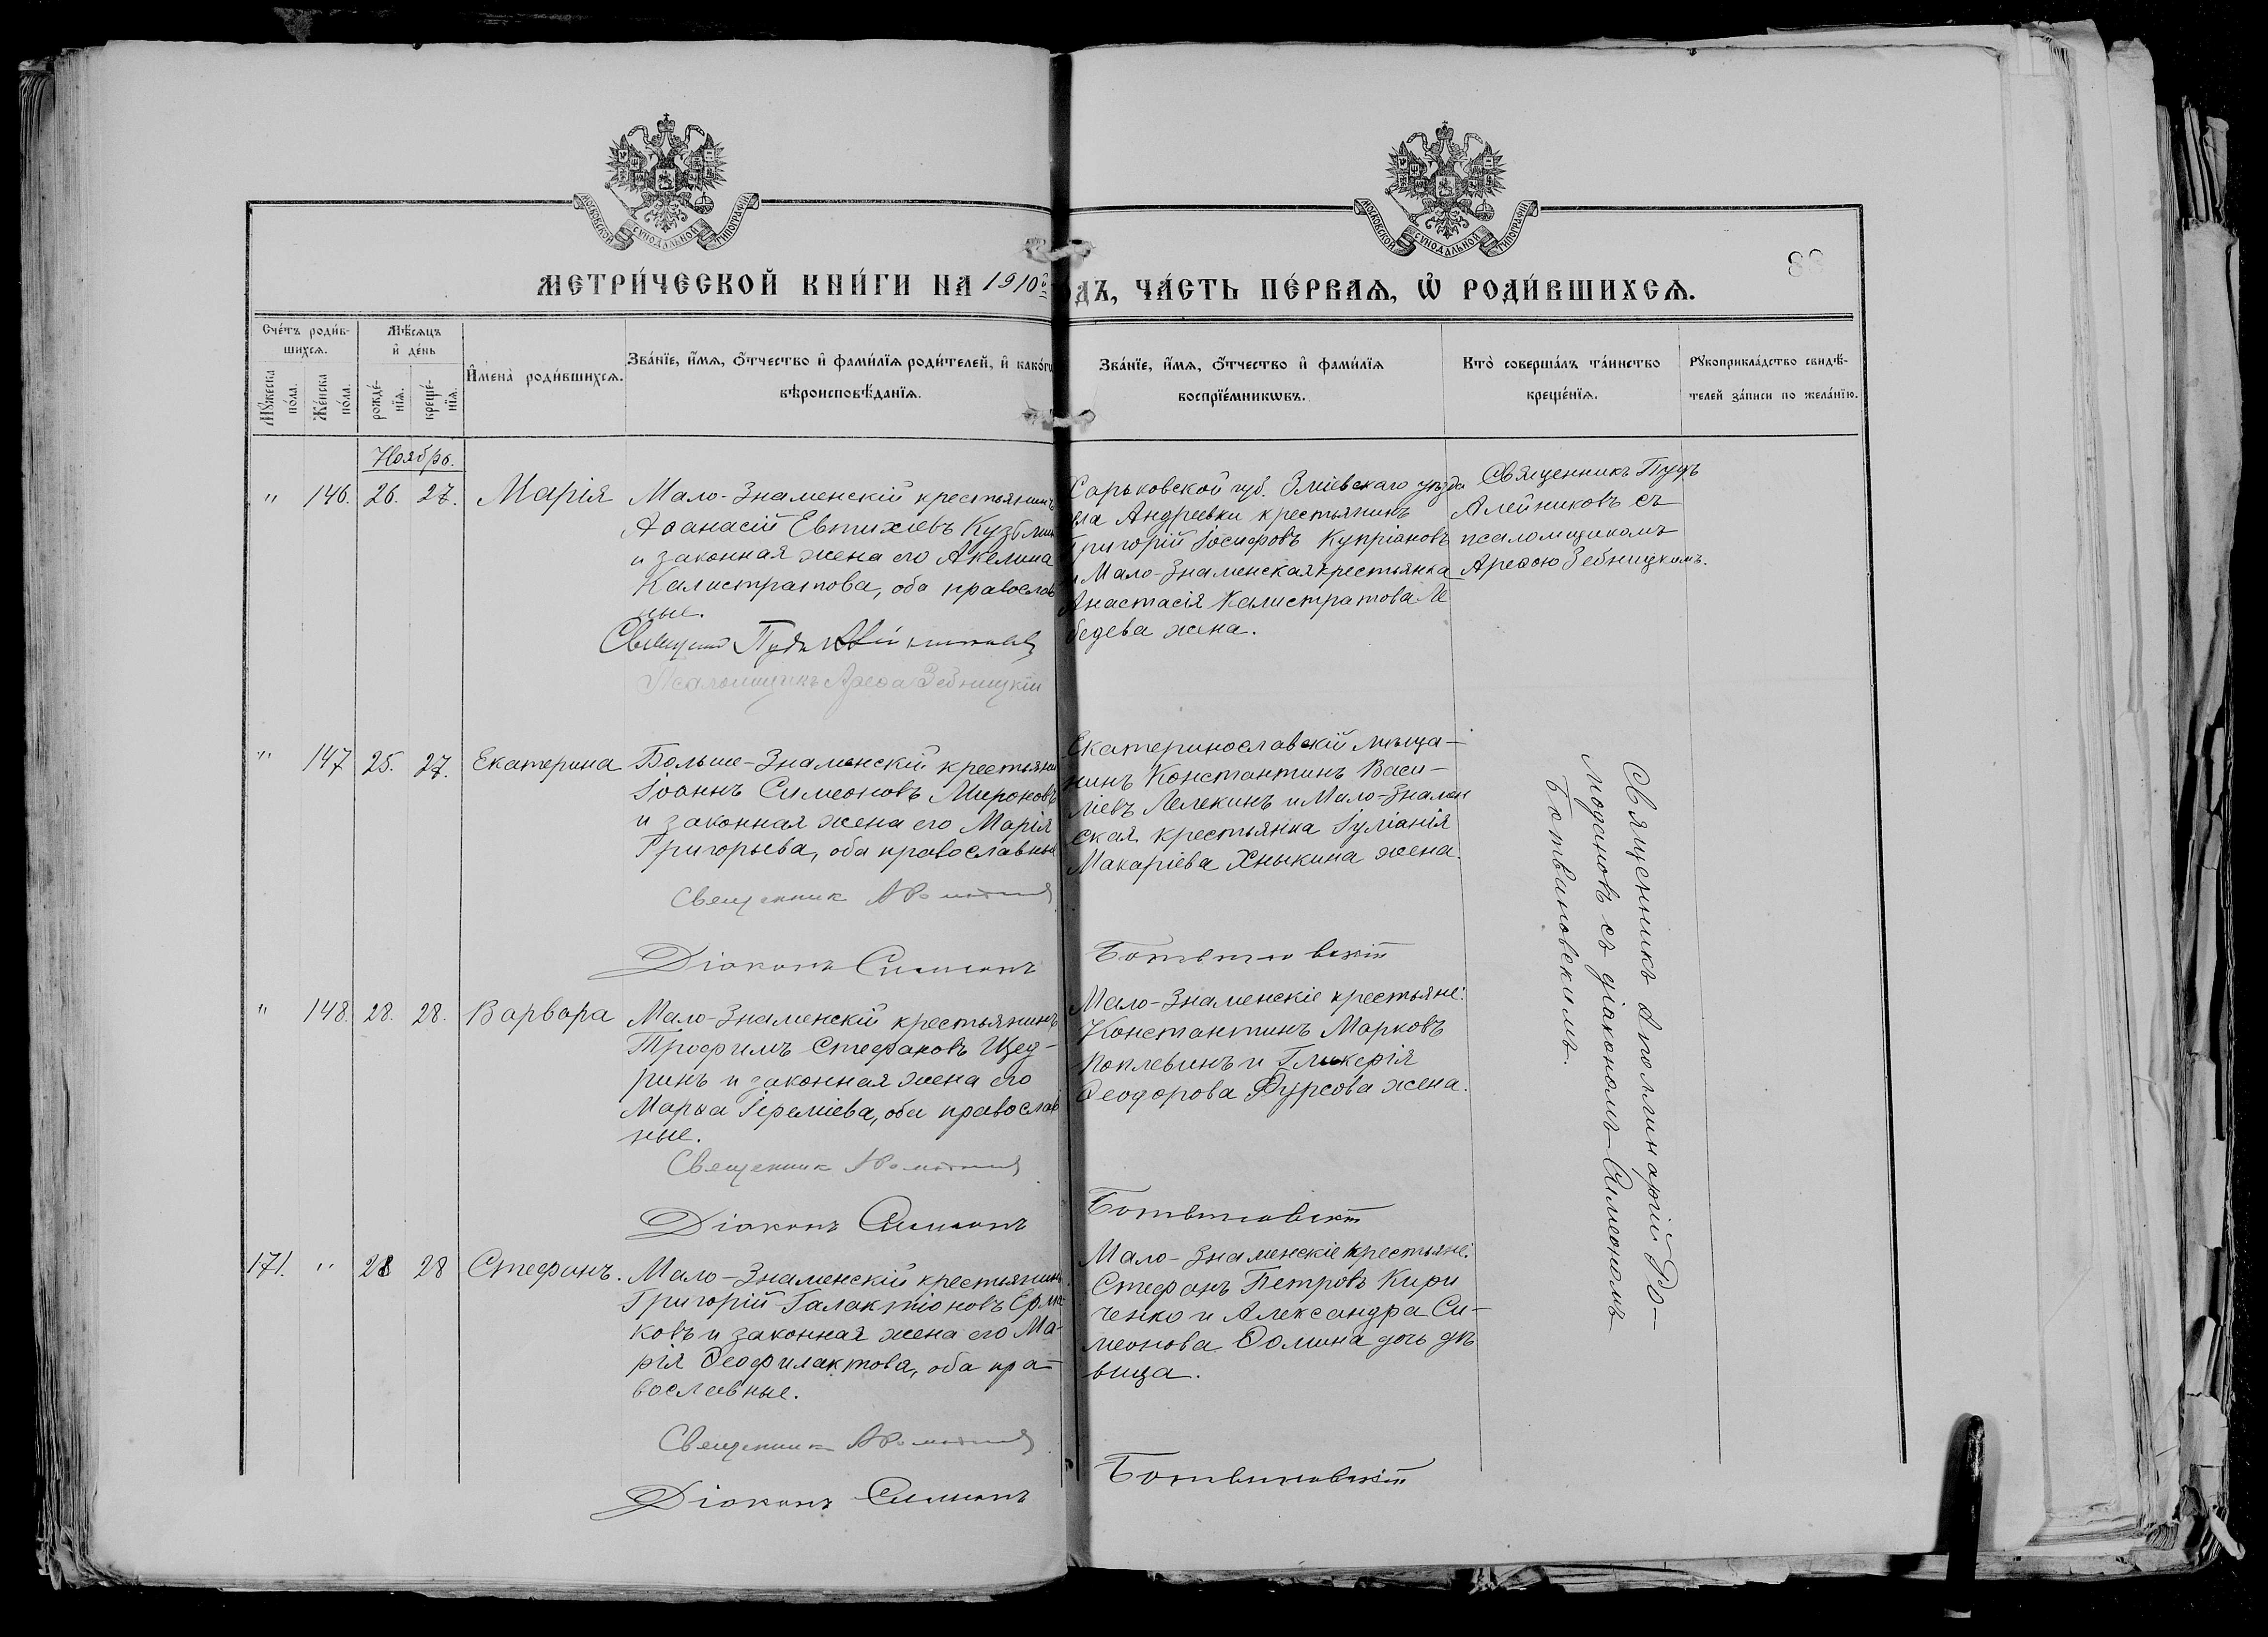 МОСКОВСКОЙ СУНОДАЛЬНОЙ ТИПОГРАФІИ
МОСКОВСКОЙ СУНОДАЛЬНОЙ ТИПОГРАФІИ
МЕТРИ́ЧЕСКОЙ КНИ́ГИ НА 1910
ДЪ, ЧА́СТЬ ПЕ́РВАѦ, Ѡ҆ РОДИ́ВШИХСѦ.
Сче́тъ роди́в-
шихсѧ.
Мꙋжеска по́ла.
Же́нска по́ла.
Мѣ́сѧцъ
и҆ де́нь
рожде́-
нїѧ.
креще́-
нїѧ.
И҆мена̀ роди́вшихсѧ.
Зва́нїе, и҆́мѧ, ѻ҆́тчество и҆ фами́лїѧ роди́телей, и҆ како́гѡ
вѣроисповѣ́данїѧ.
Зва́нїе, и҆́мѧ, ѻ҆́тчество и҆ фами́лїѧ
воспрїе́мникѡвъ.
Кто̀ соверша́лъ та́инство
креще́нїѧ.
Рꙋкоприкла́дство свидѣ́-
телей за́писи по жела́нїю.
Ноябрь.
" 146. 26. 27. Марія
Мало-Знаменскій крестьянинъ
Аѳанасій Евтихіевъ Кузьмин
и законная жена его Акелина
Калистратова, оба православ
ные.
Псаломщикъ Арефа Зебницкій
Харьковской губ. Зміевскаго уѣзда
ела Андреевки крестьянинъ
Григорій Іосифовъ Купріановъ
и Мало-Знаменская крестьянка
Анастасія Калистратова Ле
бедева жена.
Священникъ Пудъ
Алейниковъ съ
псаломщикомъ
Арефою Зебницкимъ.
" 147 25. 27. Екатерина
Больше-Знаменскій крестьянин
Іоаннъ Симеоновъ Мироновъ
и законная жена его Марія
Григорьева, оба православны
Священник
Діаконъ Симеонъ Ботвиновскій
Екатеринославскій мѣща-
нинъ Константинъ Васи-
ліевъ Лелекинъ и Мало-Знамен
ская крестьянка Іуліанія
Макаріева Хныкина жена.
" 148. 28. 28. Варвара
Мало-Знаменскій крестьянинъ
Трофимъ Стефановъ Щед-
ринъ и законная жена его
Марѳа Іереміева, оба православ
ные.
Священник
Діаконъ Симеонъ Ботвиновскій
Мало-Знаменскіе крестьяне:
Константинъ Марковъ
Коплевинъ и Гликерія
Ѳеодорова Фурсова жена.
171. " 28 28 Стефанъ.
Мало-Знаменскій крестьянинъ
Григорій Галактіоновъ Ерма
ковъ и законная жена его Ма-
рія Ѳеофилактова, оба пра-
вославные.
Священник
Діаконъ Симеонъ Ботвиновскій
Мало-Знаменскіе крестьяне:
Стефанъ Петровъ Кири
ченко и Александра Си-
меонова Ѳомина дочь дѣ
вица.
Священникъ Аполлинарій Ро-
модановъ съ діакономъ Симеономъ
Ботвиновскимъ.